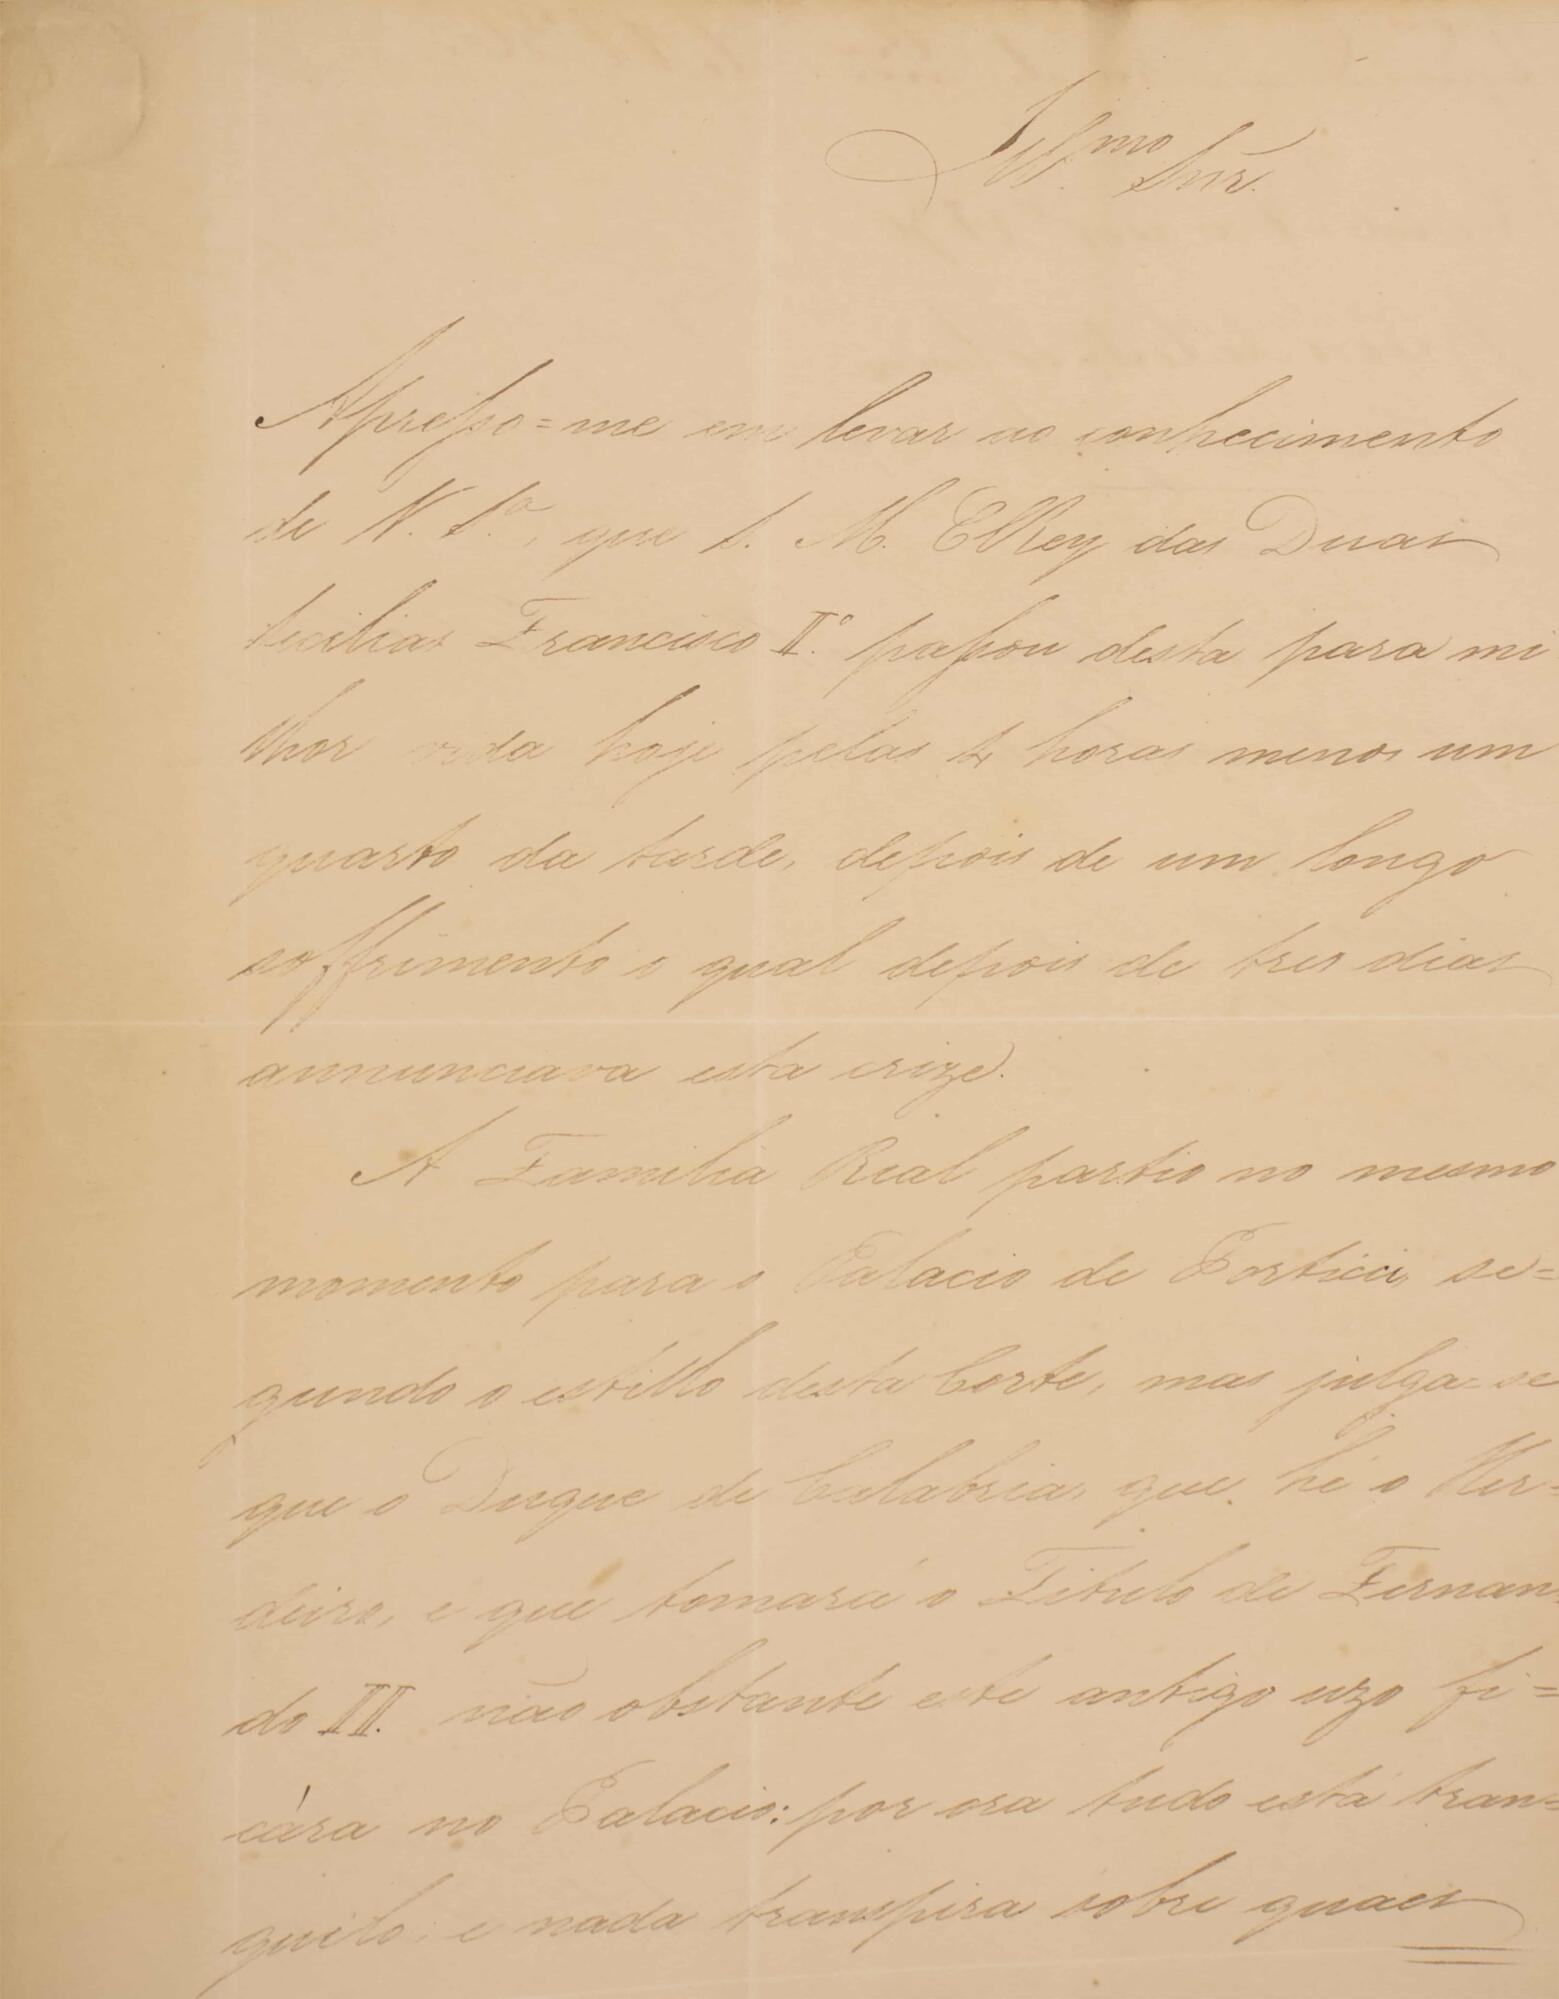 Ill.mo Snr.
Apresso=me em levar ao conhecimento
de V. S.a, que S. M. ElRey das Duas
Secilias Francisco II.º passou desta para mi
lhor vida hoje pelas 4 horas menos um
quarto da tarde, depois de um longo
soffrimento o qual depois de tres dias
annunciava esta crize.
A Familia Real partio no mesmo
momento para o Palacio de Portici, se=
gundo o estillo desta Corte, mas julga=se
que o Duque de Calabria, que hé o Her=
deiro, e que tomará o Titulo de Fernan=
do II. não obstante este antigo uzo fi=
cára no Palacio: por ora tudo está tran=
quilo, e nada transpira sobre quaes